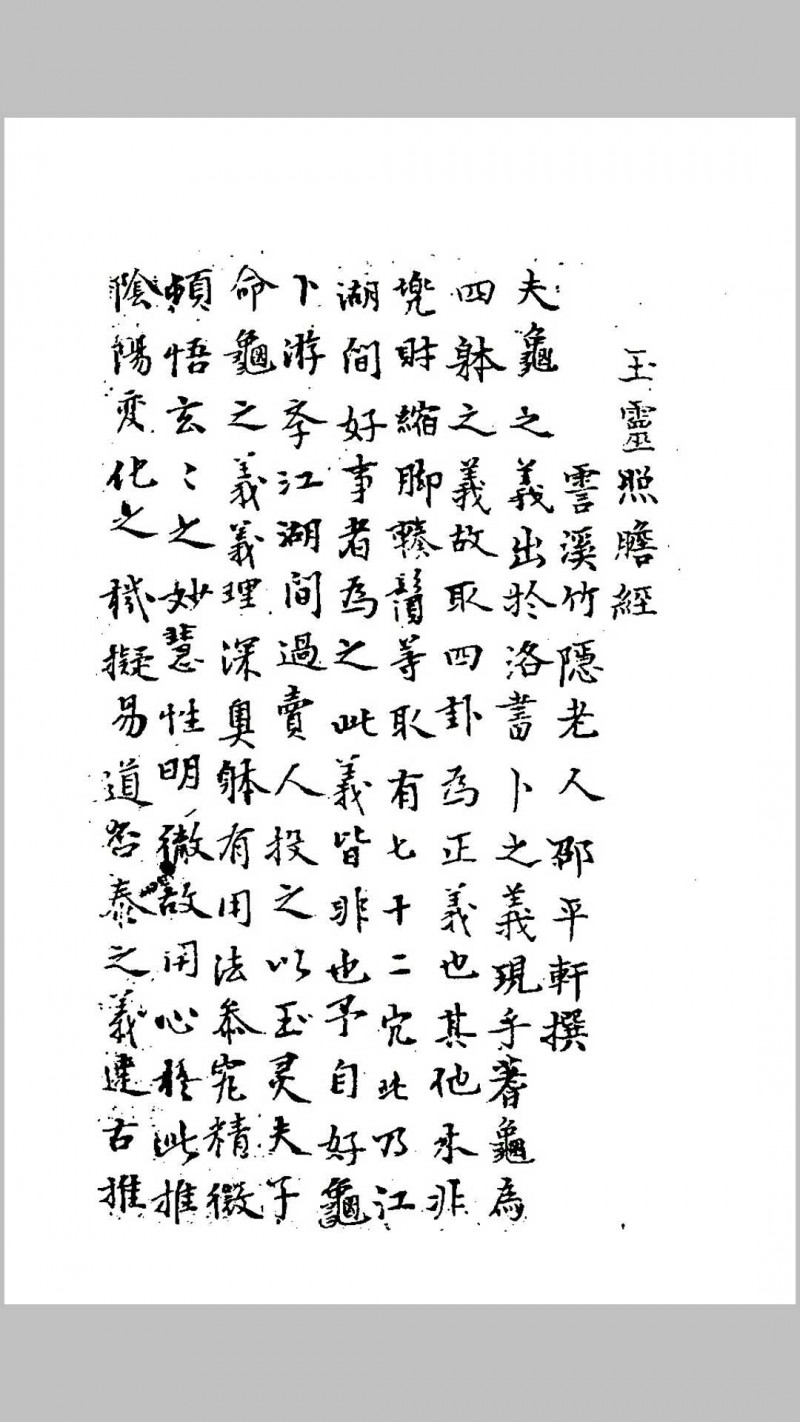 玉靈照膽經
霅溪竹隱老人邵平軒撰
夫龜之義出於洛書卜之義現乎蓍龜為
四躰之義故取四卦為正義也其他朩非
兠財縮脚轃鬚等取有七十二穴此乃江
湖間好事者為之此義皆非也予自好龜
卜游季江湖間過賣人投之以玉灵夫子
命龜之義義理深奧躰有用法叅究精微
頓悟玄〻之妙慧性明徹故用心於此推
隂陽变化之機擬易道否泰之義建古推